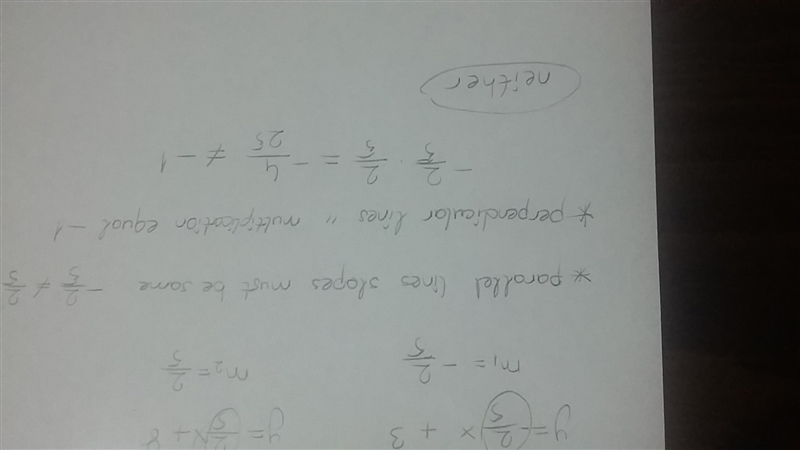 y = -2/5 x + 3 y = 2/5 x + 8
m₁ = - 2/5 m₂ = 2/5
* parallel lines slopes must be same - 2/5 ≠ 2/5
* perpendicular lines " multiplication equal -1
- 2/5 · 2/5 = - 4/25 ≠ -1
neither